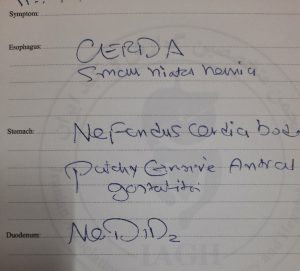 Symptom:
Esophagus: GERDA
Small hiatal hernia
Stomach: NeFundus cardia bod
patchy erosive Antral
gastritis
Duodenum: NeD1D2
IAGH